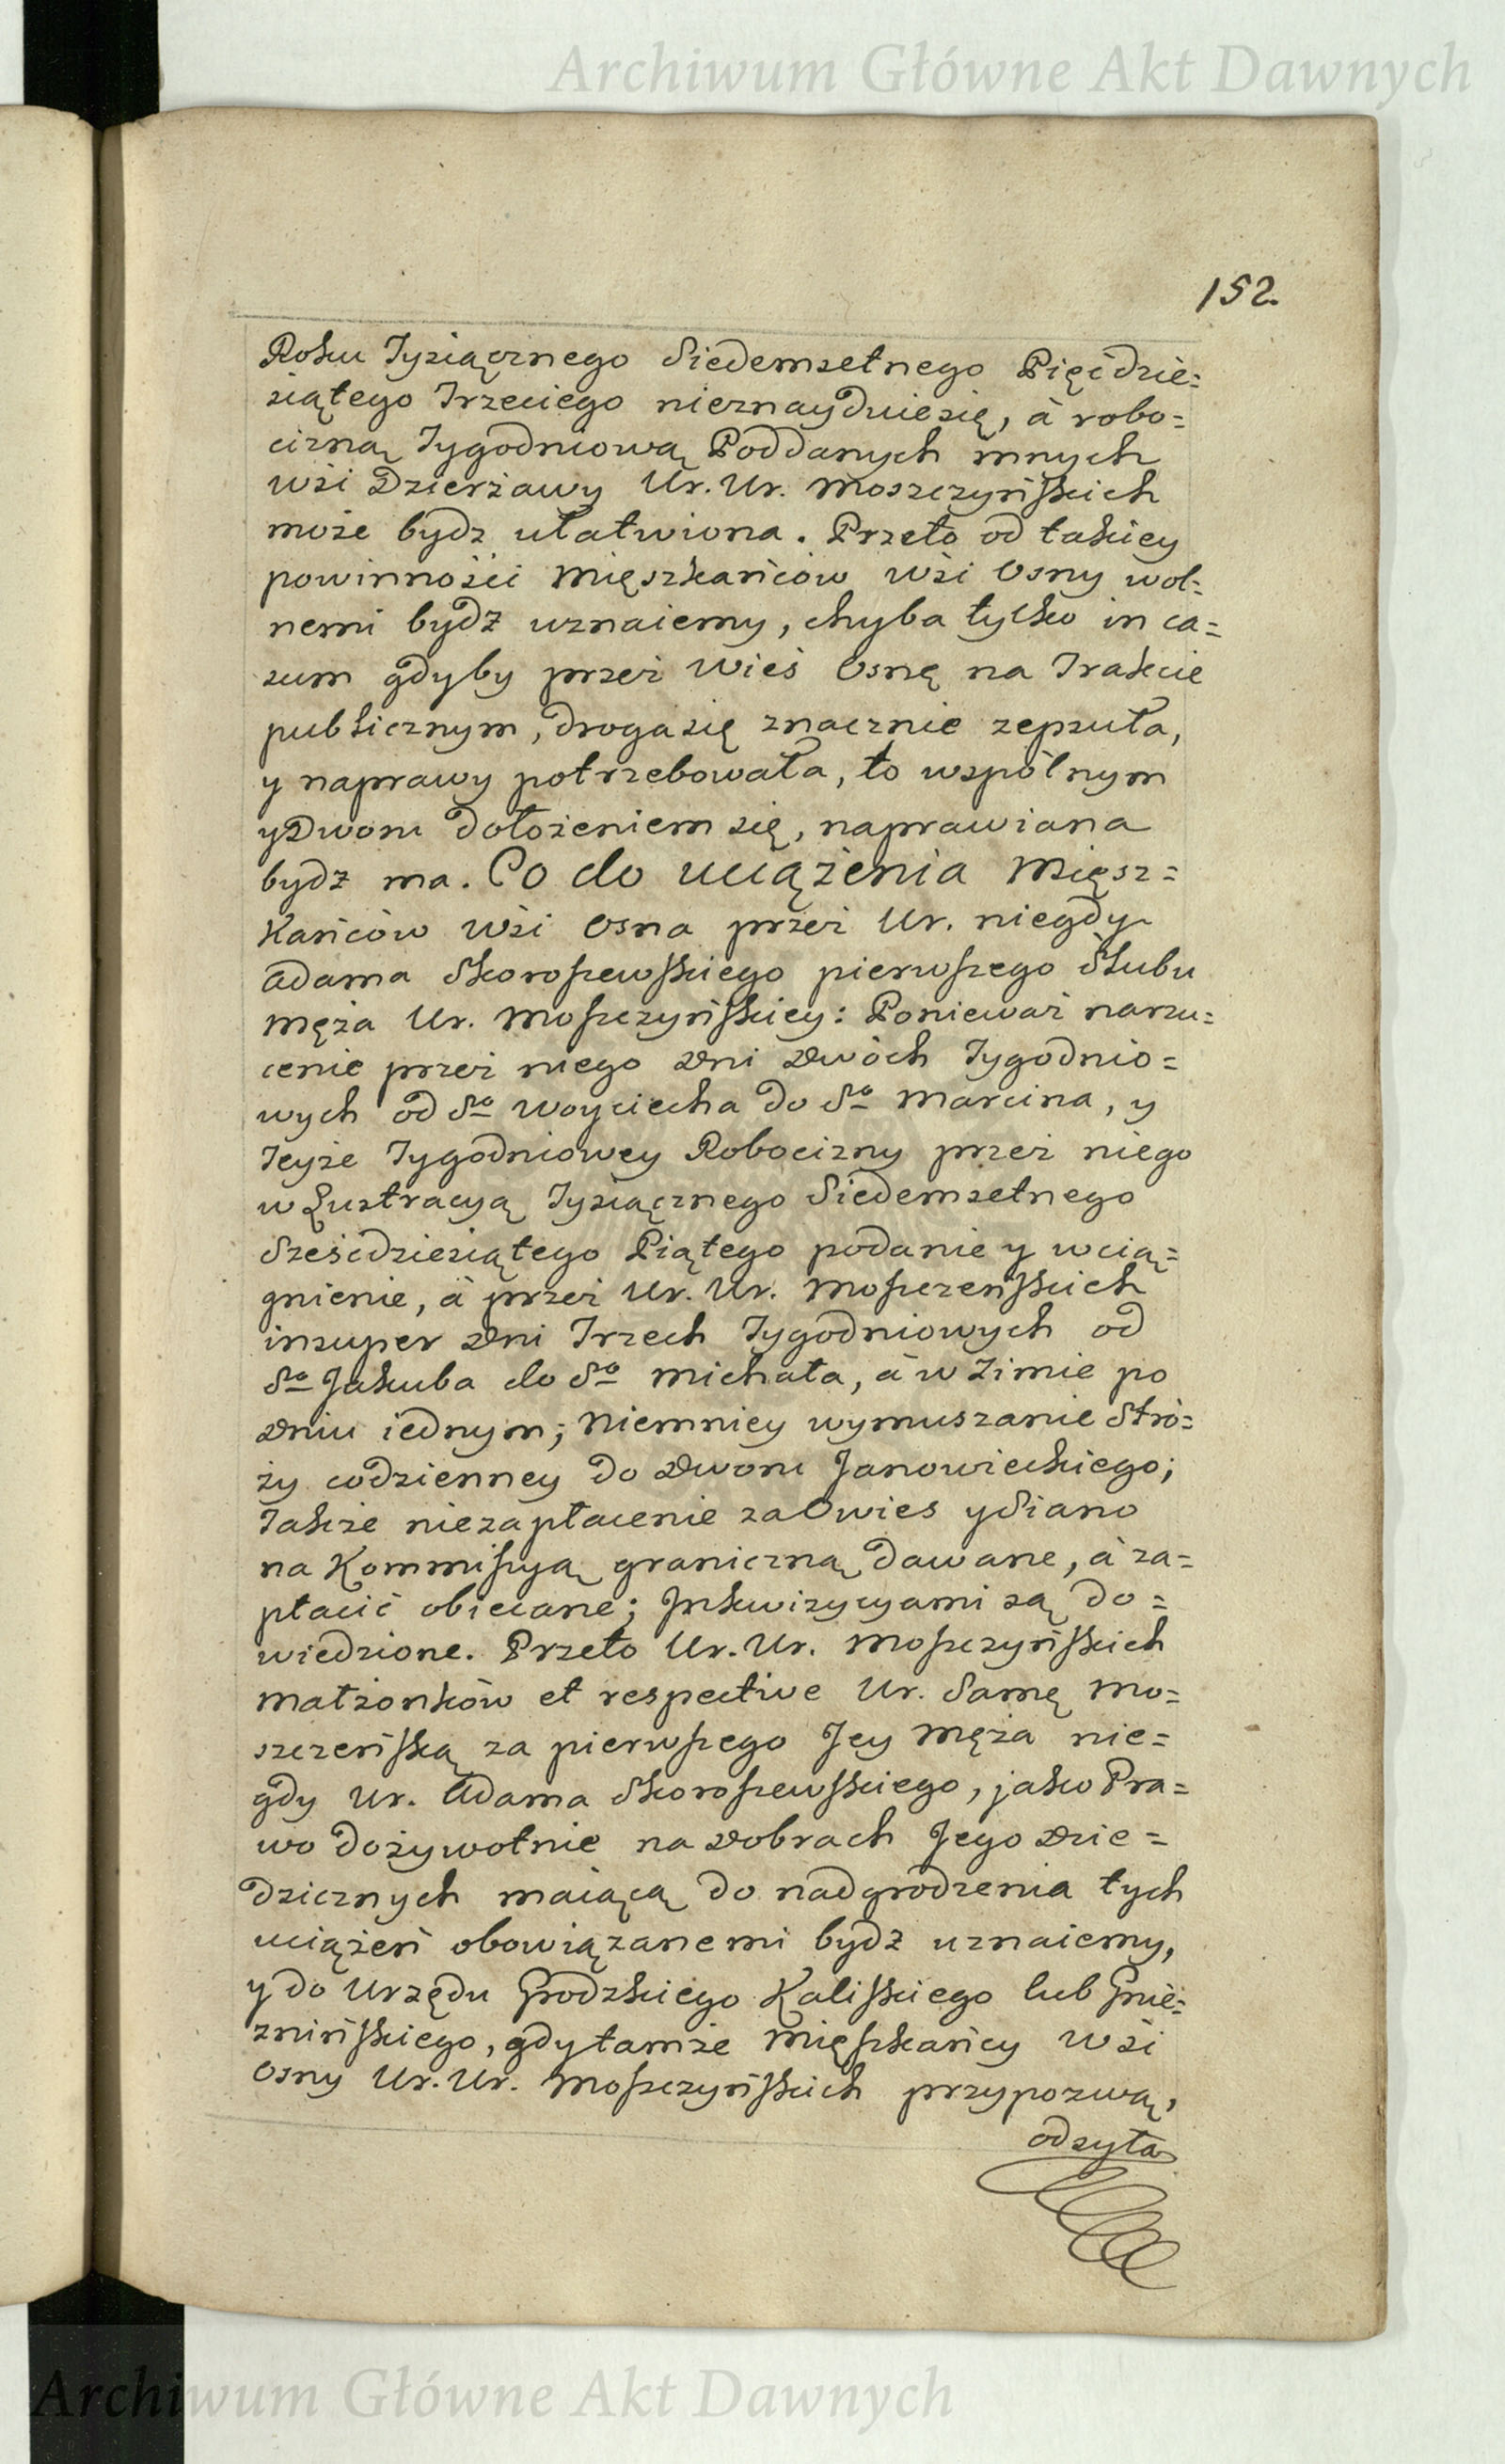 Archiwum Główne Akt Dawnych
152.
Roku Tysiącznego Siedemsetnego Pięćdzie=
siątego Trzeciego nieznayduie się, à robo=
cizną Tygodniową Poddanych innych
wśi Dzierżawy Ur. Ur. Moszczyńskich
może bydz ułatwiona. Przeto od takiey
powinnośći Mięszkańców Wśi Osny wol=
nemi bydź uznaiemy, chyba tylko in ca=
sum gdyby przez Wieś Osnę na Trakcie
publicznym, droga się znacznie zepsuła,
y naprawy potrzebowała, to wspólnym
y Dworu dołożeniem się, naprawiana
bydź ma. Co do uciążenia Mięsz=
kańców Wśi Osna przez Ur. niegdy
Adama Skoroszewskiego pierwszego Ślubu
Męża Ur. Moszczyńskiey: Ponieważ narzu=
cenie przez niego Dni Dwóch Tygodnio=
wych od Sgo Woyciecha do Sgo Marcina, y
Teyże Tygodniowey Robocizny przez niego
w Lustracyą Tysiącznego Siedemsetnego
Sześćdziesiątego Piątego podanie y wcią=
gnienie, à przez Ur. Ur. Moszczeńskich
insuper Dni Trzech Tygodniowych od
Sgo Jakuba do Sgo Michała, à w Zimie po
Dniu iednym; Niemniey wymuszanie Stró=
ży codzienney do Dworu Janowieckiego;
Także niezapłacenie za Owies y Siano
na Kommissyą graniczną dawane, à za=
płacić obiecane; Inkwizycyami są do=
wiedzione. Przeto Ur. Ur. Moszczyńskich
Małżonków et respective Ur. Samę Mo=
szczeńską za pierwszego Jey Męża nie=
gdy Ur. Adama Skoroszewskiego, jako Pra=
wo dożywotnie na Dobrach Jego Dzie=
dzicznych maiącą do nadgrodzenia tych
uciążeń obowiązanemi bydź uznaiemy,
y do Urzędu Grodzkiego Kaliskiego lub Gnie=
znińskiego, gdy tamże Mięszkańcy Wśi
Osny Ur. Ur. Moszczyńskich przypozwą,
odsyła
Archiwum Główne Akt Dawnych